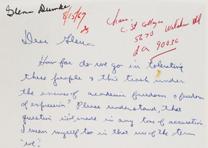 Glenn Dumke
8/15/67
5670
LA 90036
Dear Glenn
How far do we go in tolerating
these people & this trash under
the excuse of academic freedom & freedom
of expression? Please understand, that
question isn't made in any tone of accusation
I mean myself too in that use of the term
"we".